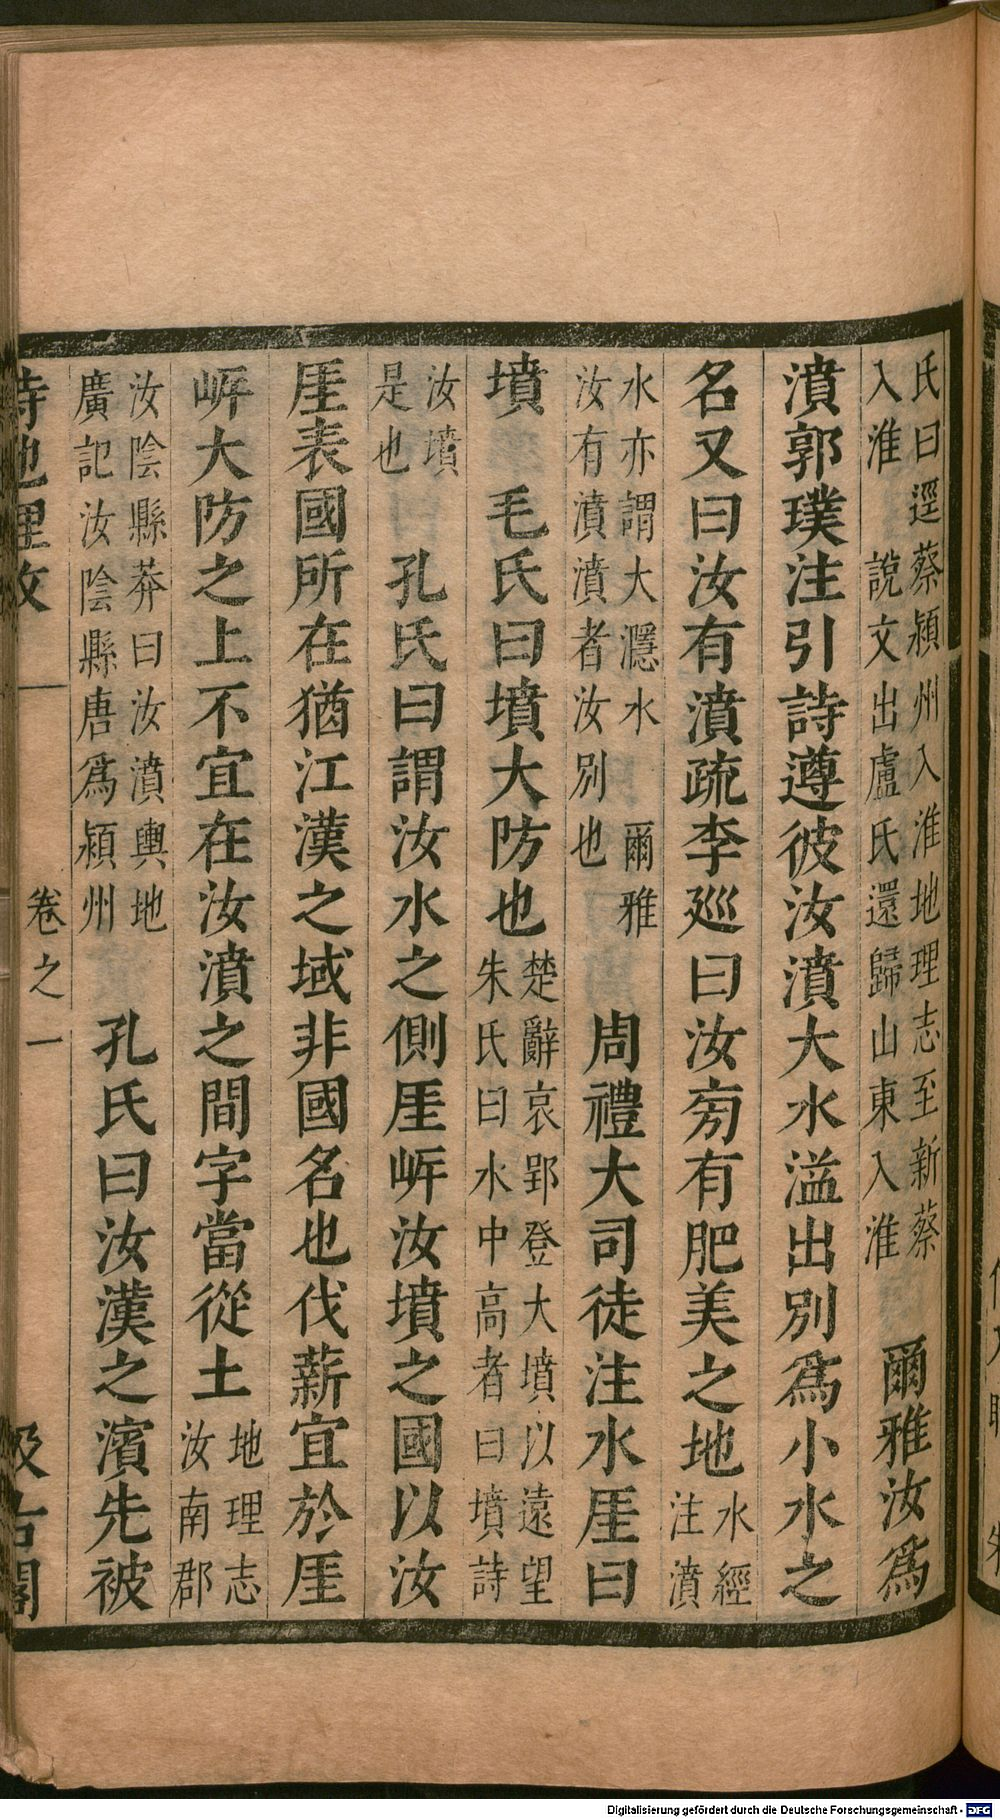 氏曰逕蔡潁州入淮地理志至新蔡
入淮　說文出盧氏還歸山東入淮
爾雅汝爲
濆郭璞注引詩遵彼汝濆大水溢出別爲小水之
名又曰汝有濆疏李廵曰汝旁有肥美之地
水經
注濆
水亦謂大㶏水　爾雅
汝有濆濆者汝別也
周禮大司徒注水厓曰
墳　毛氏曰墳大防也
楚辭哀郢登大墳以遠望
朱氏曰水中高者曰墳詩
汝墳
是也
孔氏曰謂汝水之側厓㟁汝墳之國以汝
厓表國所在猶江漢之域非國名也伐薪宜於厓
㟁大防之上不宜在汝濆之間字當從土
地理志
汝南郡
汝陰縣莽曰汝濆輿地
廣記汝陰縣唐爲潁州
孔氏曰汝漢之濱先被
詩地理攷
卷之一
汲古閣
Digitalisierung gefördert durch die Deutsche Forschungsgemeinschaft - DFG